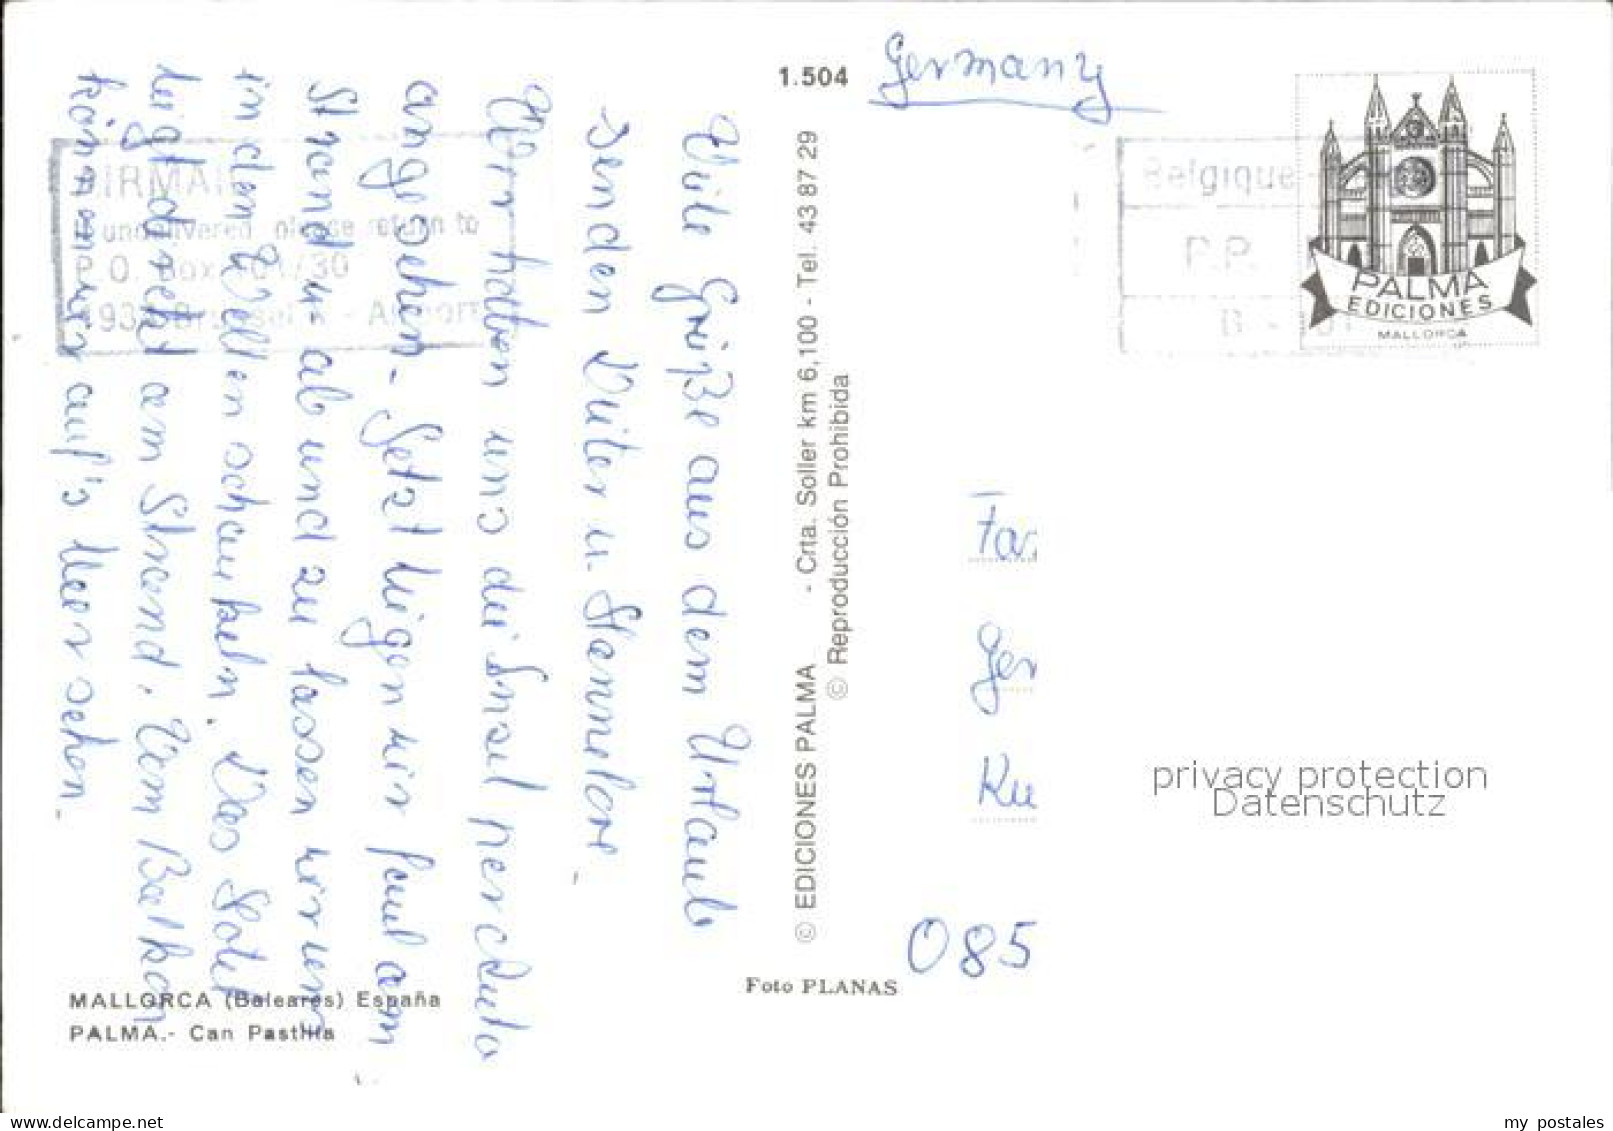 Viele Grüße aus dem Urlaub
senden Dieter u. Hannelore.
Wir haben uns die Insel per Auto
angesehen. Jetzt liegen wir faul am
Strand u. ab und zu lassen wir uns
in den Wellen schaukeln. Das Hotel
liegt direkt am Strand. Vom Balkon
können wir auf's Meer sehen.
AIRMAIL
undelivered please return to
P.O. Box
Brussel - Airport
MALLORCA (Baleares) España
PALMA.- Can Pastilla
Foto PLANAS
© EDICIONES PALMA - Crta. Soller km 6,100 - Tel. 43 87 29
© Reproducción Prohibida
1.504
Germany
Belgique
P.P.
PALMA
EDICIONES
MALLORCA
Fa
Ger
Ku
085
privacy protection
Datenschutz
delcampe.net
my postales